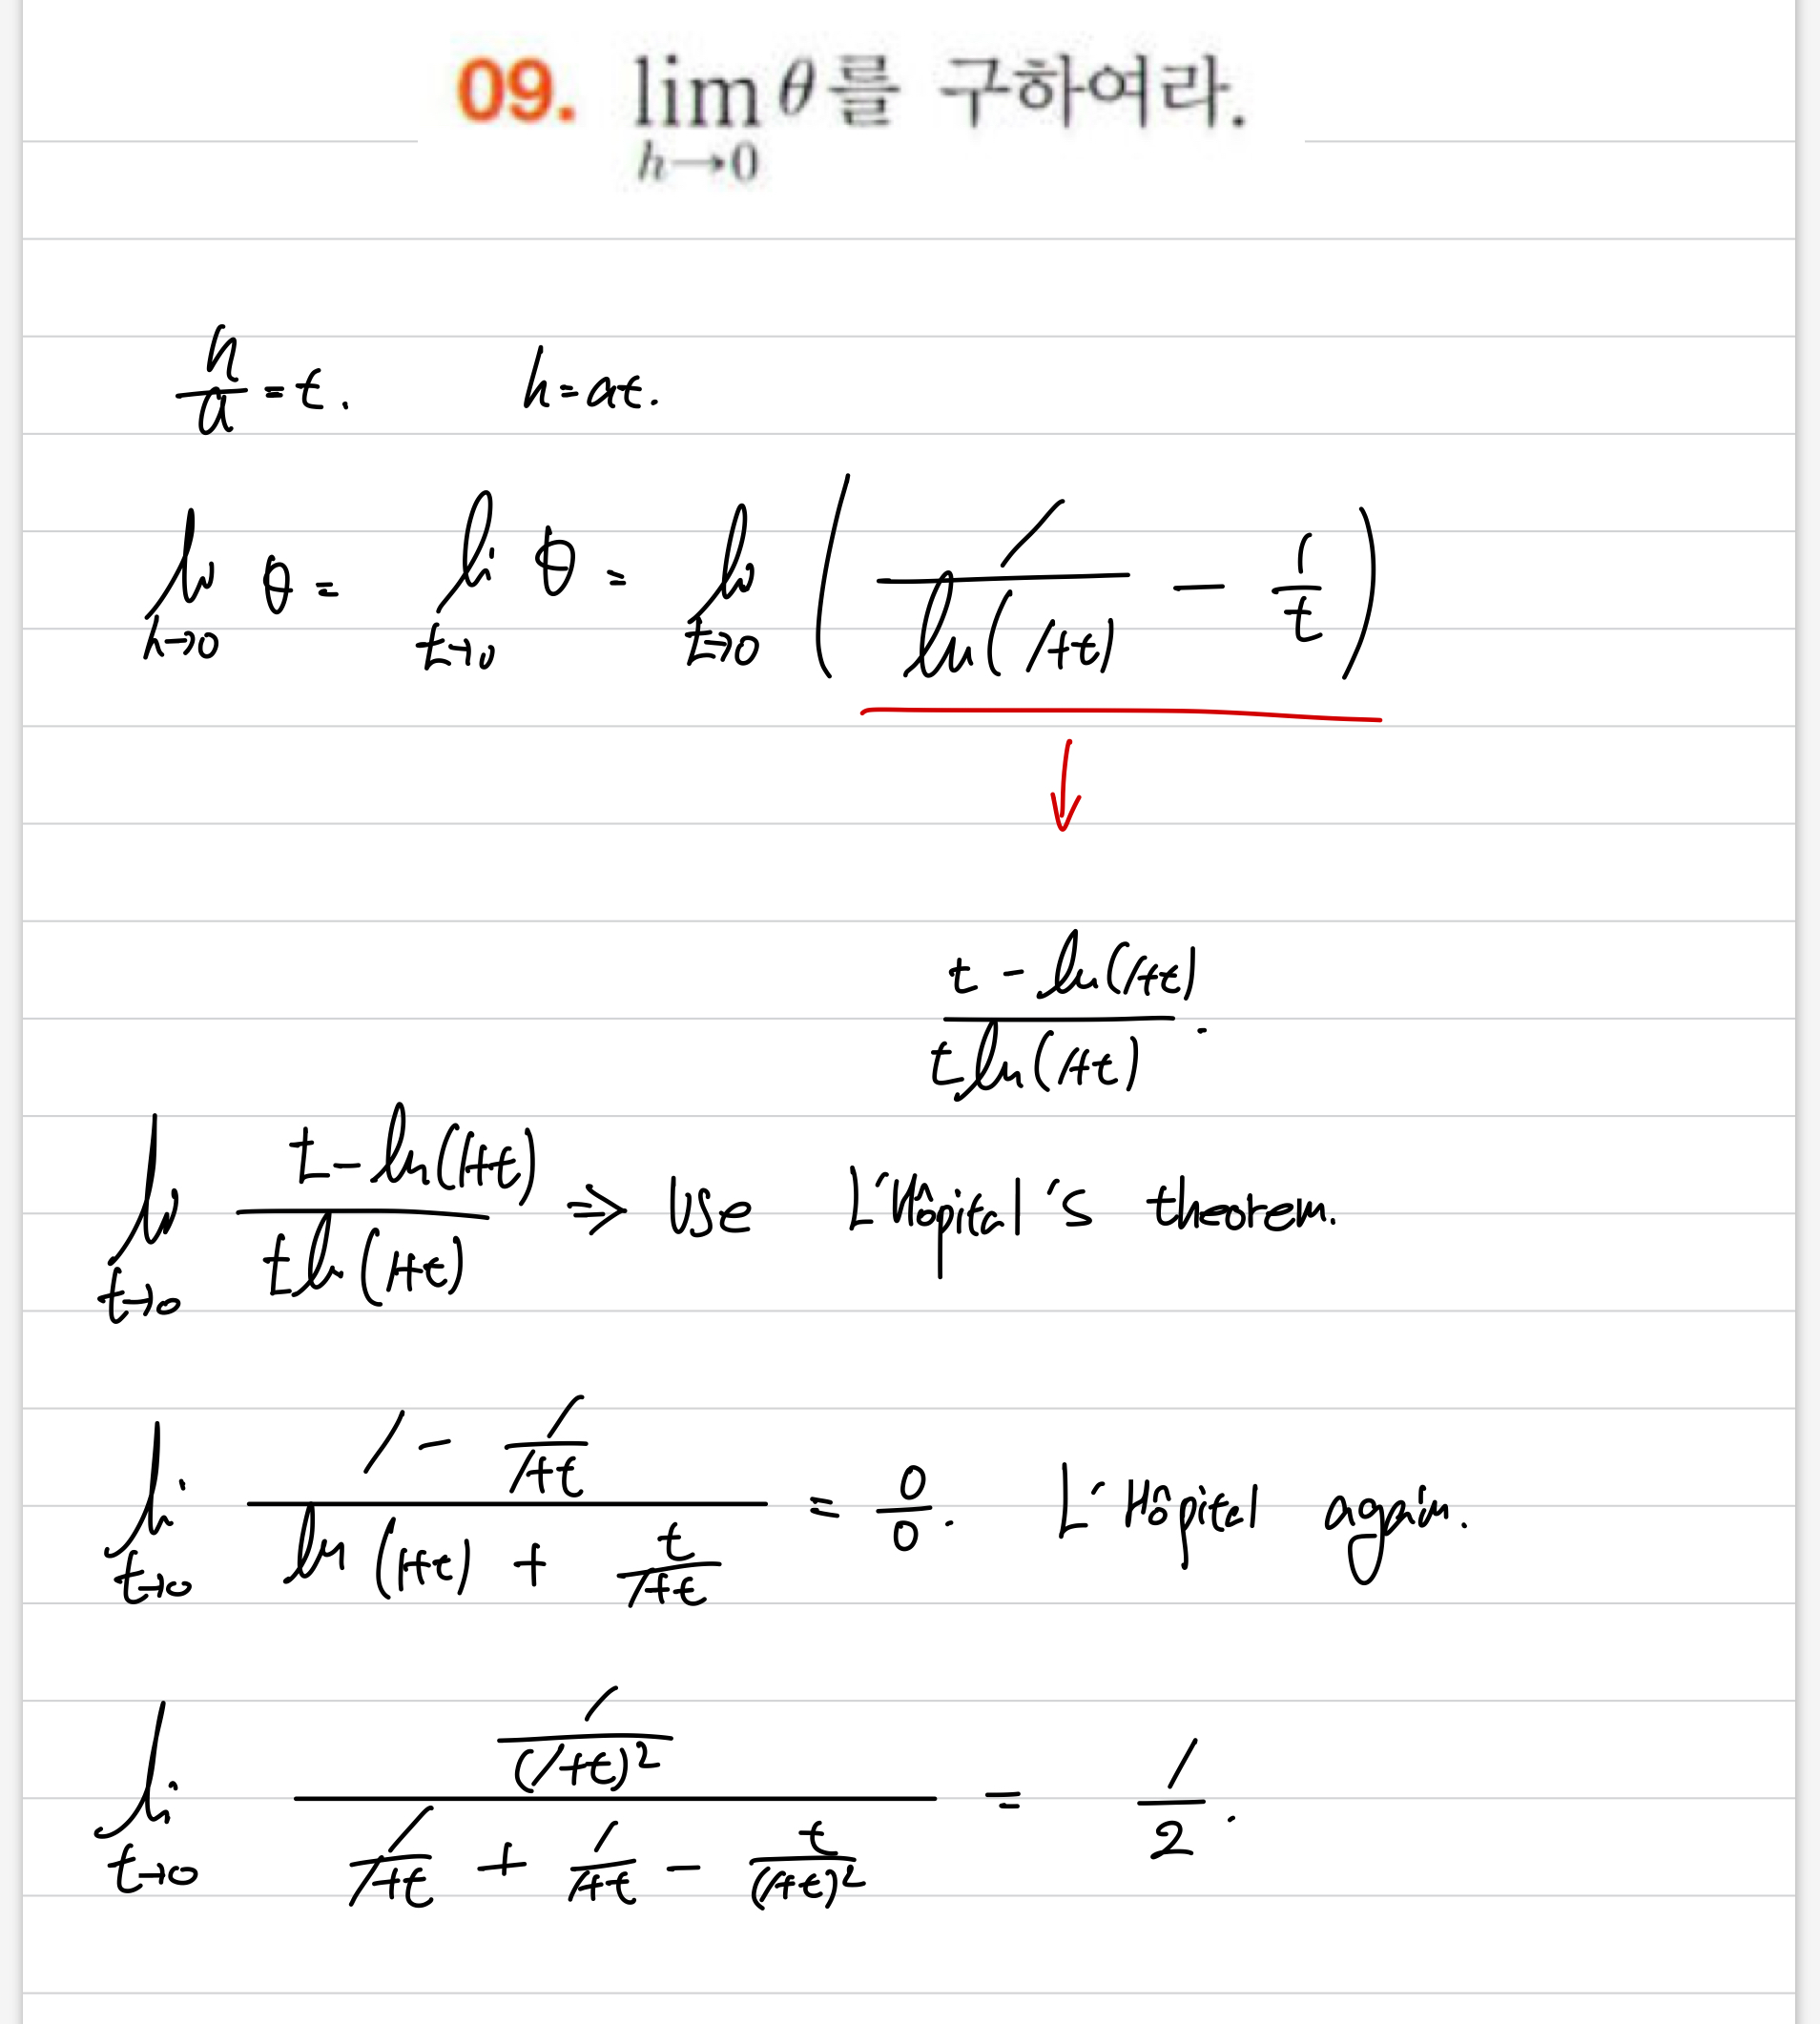 09. lim θ를 구하여라.
h→0
h/a = t. h = at.
lim θ = lim θ = lim ( 1/ln(1+t) − 1/t )
h→0 t→0 t→0
↓
t − ln(1+t) / t ln(1+t) .
lim t→0 t − ln(1+t) / t ln(1+t) ⇒ Use L'Hôpital's theorem.
lim t→0 (1 − 1/(1+t)) / (ln(1+t) + t/(1+t)) = 0/0. L'Hôpital again.
lim t→0 (1/(1+t)²) / (1/(1+t) + 1/(1+t) − t/(1+t)²) = 1/2.